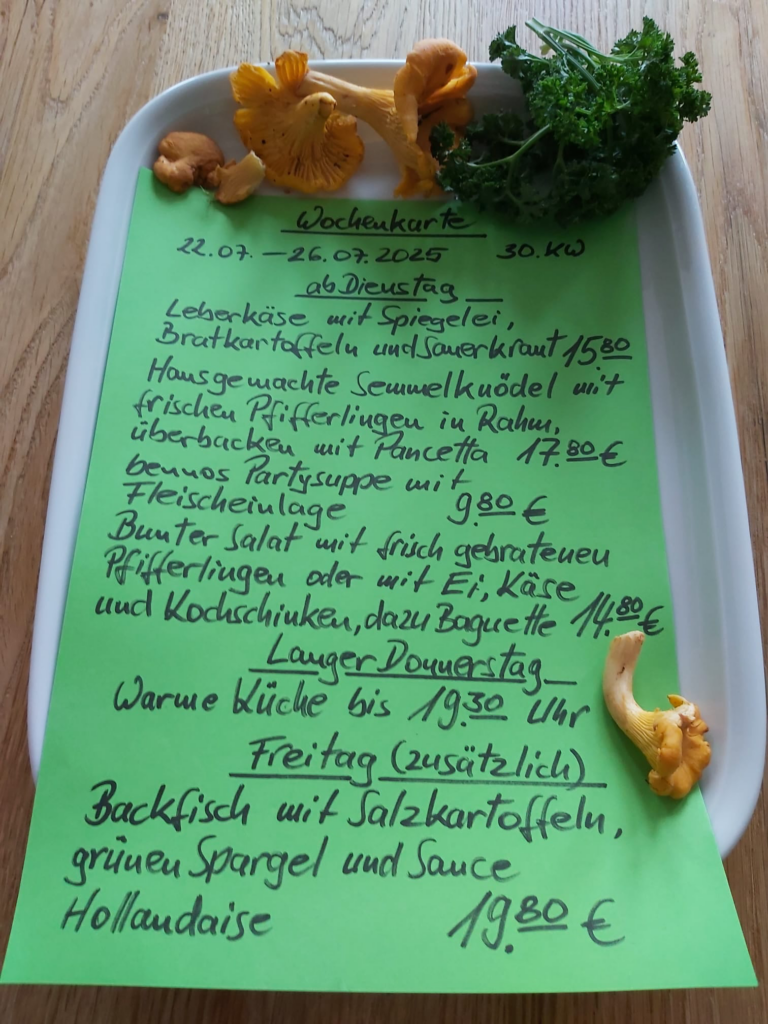 Wochenkarte
22.07. – 26.07.2025 30.KW
ab Dienstag
Leberkäse mit Spiegelei,
Bratkartoffeln und Sauerkraut 15.80
Hausgemachte Semmelknödel mit
frischen Pfifferlingen in Rahm,
überbacken mit Pancetta 17.80 €
bennos Partysuppe mit
Fleischeinlage 9.80 €
Bunter Salat mit frisch gebratenen
Pfifferlingen oder mit Ei, Käse
und Kochschinken, dazu Baguette 14.80 €
Langer Donnerstag
Warme Küche bis 19.30 Uhr
Freitag (zusätzlich)
Backfisch mit Salzkartoffeln,
grünen Spargel und Sauce
Hollandaise 19.80 €